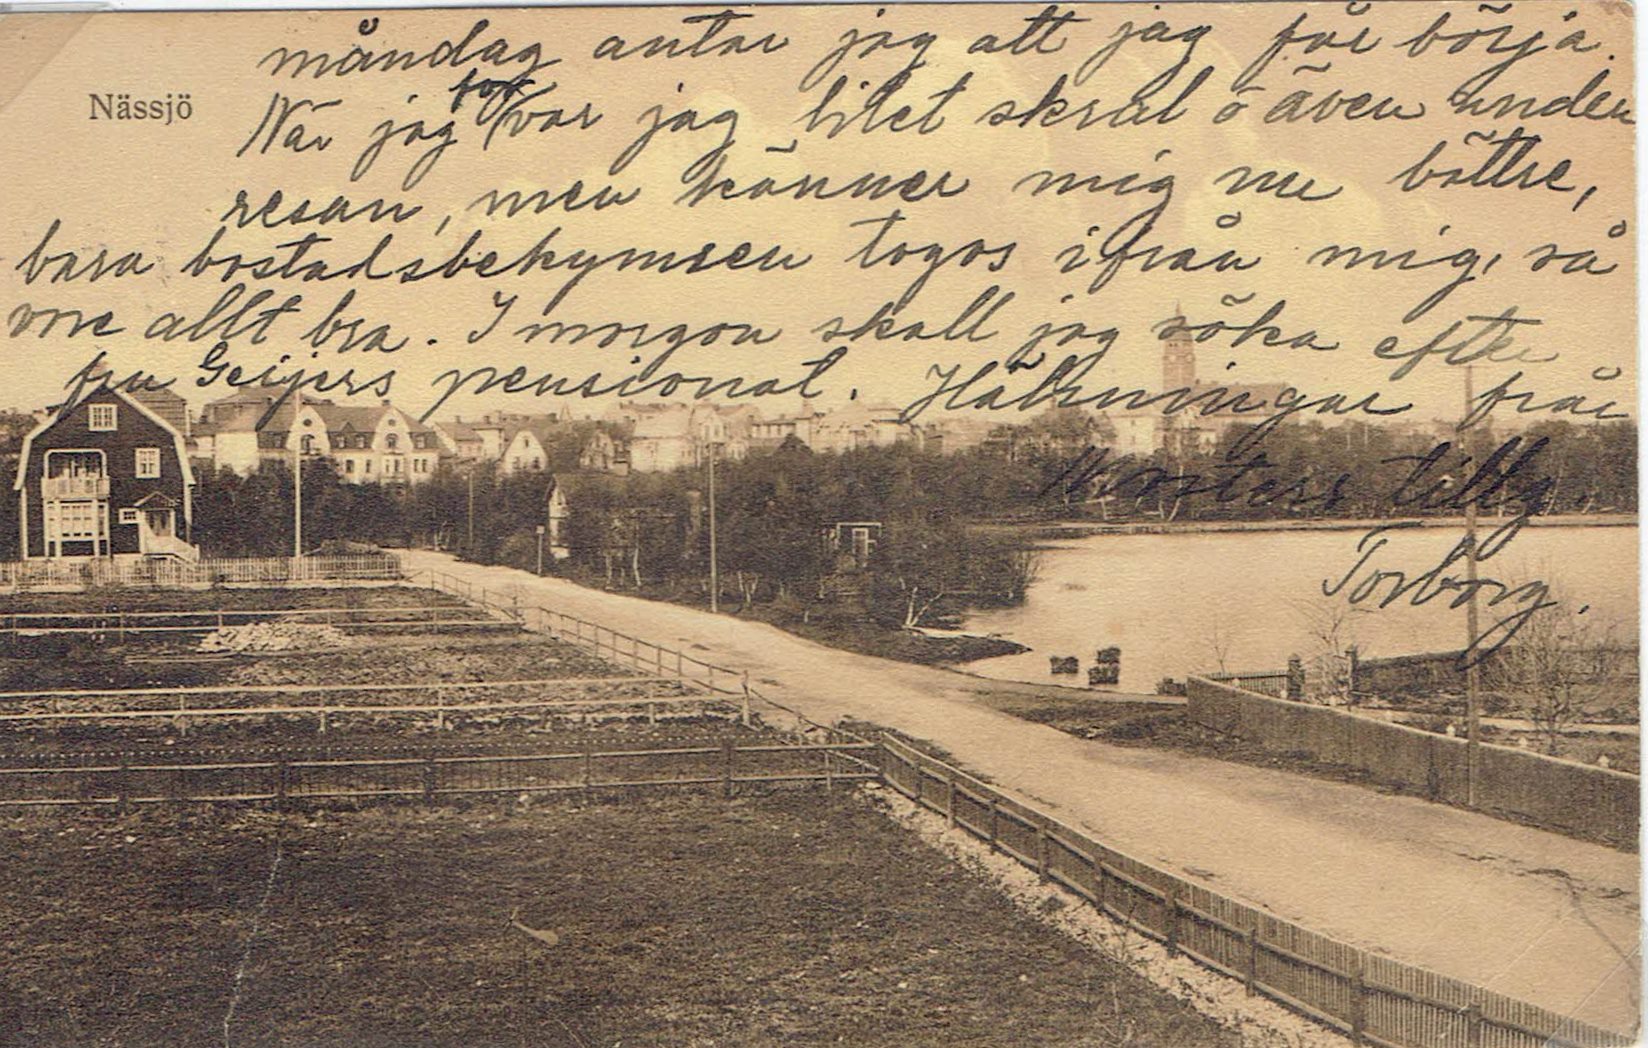 Nässjö
måndag antar jag att jag får börja.
När jag for var jag litet skral o även under
resan, men känner mig nu bättre,
bara bostadsbekymren togos ifrån mig, så
vore allt bra. I morgon skall jag söka efter
fru Geijers pensionat. Hälsningar från
tillg.
Torborg.